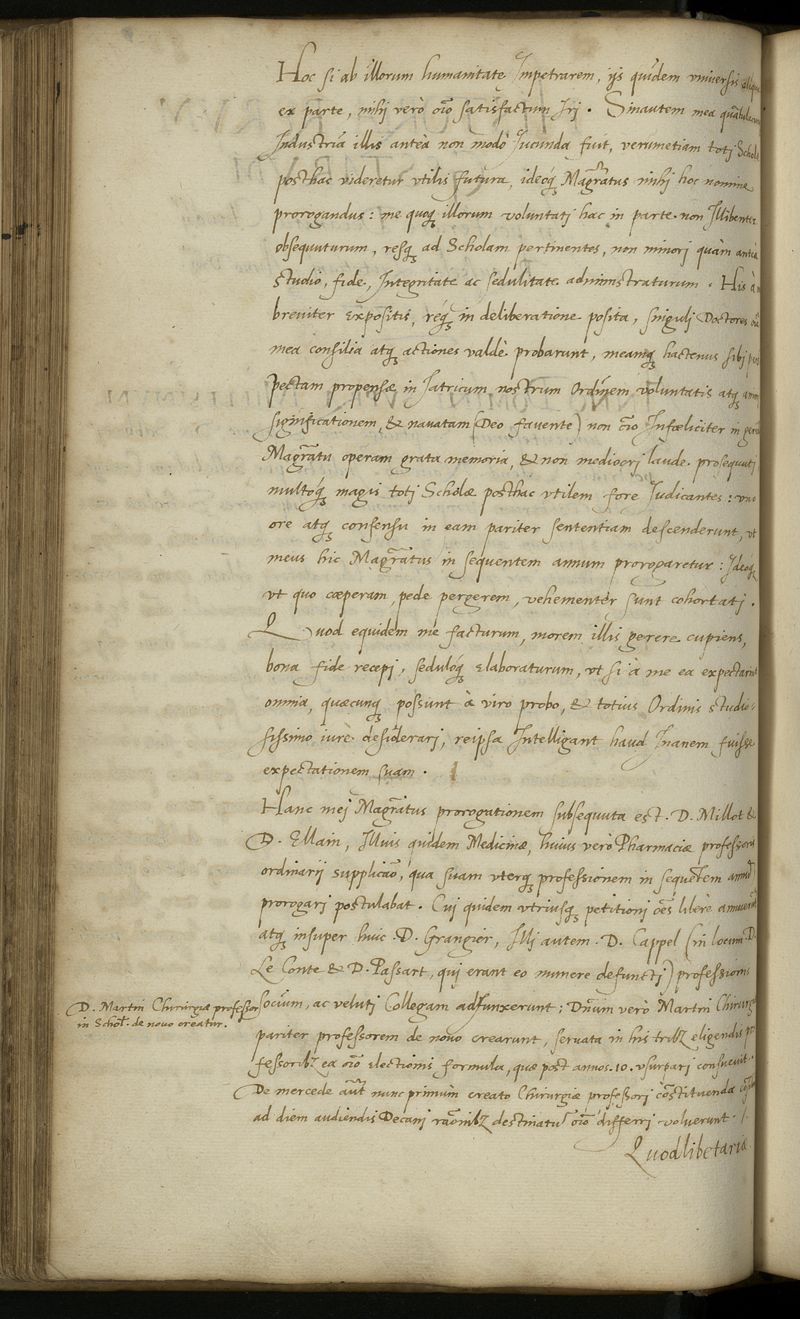 Hoc si ab illorum humanitate Impetrarem, ijs quidem vniversis
ex parte, mihj verò oĩo satisfactum Irj. Sinautem mea
Industria illis anteà non modò Iucunda fuit, verumetiam totj Scholę
posthac videretur vtilis futura, ideoq́ Magr̃atus mihj hoc nomine
prorogandus: me quoq́ illorum voluntatj hac in parte non Illibenter
obsequuturum, resq́ ad Scholam pertinentes, non minorj quàm anteà
studio, fide, Integritate ac sedulitate administraturum. His
breviter expositis, req́ in deliberatione posita, singulj Doctores
mea consilia atq́ actiones valdè probarunt, meamq́ hactenus sibj
pectam propensæ in Iatricum nostrum Ordinem voluntatis atq́
significationem, & navatam (Deo favente) non oĩo Infœliciter in
Magr̃atu operam grata memoria, & non mediocrj laude prosequutj
multóq́ magis totj Scholæ posthac vtilem fore Iudicantes: vno
ore atq́ consensu in eam pariter sententiam descenderunt, vt
meus hic Magr̃atus in sequentem annum prorogaretur: Ideóq́
vt quo cœperam pede pergerem, vehementer sunt cohortatj.
Quod equidem me facturum, morem illis gerere cupiens,
bona fide recepj, sedulóq́ elaboraturum, vt si à me ea expectarint
omnia, quæcunq́ possunt à viro probo, & totius Ordinis studio-
sissimo iurè desiderarj, reipsa Intelligant haud Inanem fuisse
expectationem suam.
Hanc mej Magr̃atus prorogationem subsequuta est D. Millot &
D. Ellain, Illius quidem Medicinæ, huius verò Pharmaciæ professoris
ordinarij supplicaõ, qua suam vterq́ professionem in sequẽtem annũ
prorogarj postulabat. Cuj quidem vtriusq́ petitionj oẽs liberè annuerũt
atq́ insuper huic D. Grangier, Illj autem D. Cappel (in locum D.
Le Conte & D. Passart, quj erant eo munere defunctj) professionis
D. Martin Chirurgiæ professor
in Schol. de novo creatur.
socium, ac velutj Collegam adjunxerunt; Dñum verò Martin Chirurgiæ
pariter professorem de novo crearunt, servata in his tribꝫ eligendis pro-
fessoribꝫ ea oĩo electionis formula, quæ post annos .10. vsurparj consuevit.
De mercede aũt nunc primùm creato Chirurgiæ professorj cõstituenda
ad diem audiendis Decanj raõnibꝫ destinatũ oĩo differrj voluerunt.
Quodlibetariæ